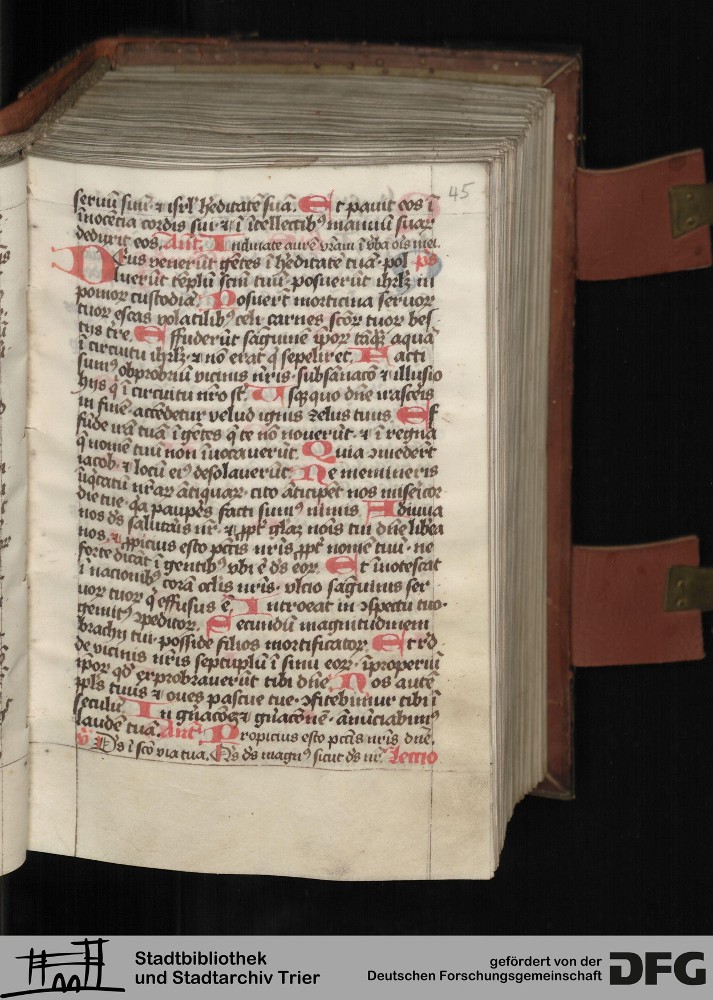 45
seruū suū· ⁊ isrl' h'editatē suā. Et pauit eos ī
īnocētia cordis sui ⁊ ī ītellectibꝰ manuū suaꝝ
deduxit eos. Ant. Inclinate aurē vr̄am ī v̄ba oīs mei.
Deus venerūt gētes ī h'editatē tuā· pol ps
luerūt tēplū sctm̄ tuū· posuerūt ihrlꝫ in
pomoꝝ custodiā. Posuerūt morticina seruoꝝ
tuoꝝ escas volatilibꝰ celi carnes sc̄oꝝ tuoꝝ bes
tijs t're. Effuderūt sāguinē ip̄oꝝ tāqꝫ aquā
ī circuitu ihrlꝫ ⁊ nō erat q̄ sepeliret. Facti
sumꝰ obprobriū vicinis nr̄is· subsānacō ⁊ illusio
hijs q̄ ī circuitu nr̄o st̄. Usqꝫquo dn̄e irasceris
in finē· accēdetur velud ignis zelus tuus. Ef
fūde irā tuā ī gētes q̄ te nō nouerūt· ⁊ ī regna
q̄ nomē tuū non īuocauerūt. Quia ↄmederūt
iacob· ⁊ locū eiꝰ desolauerūt. Ne memineris
īiq̄tatū nr̄aꝝ ātiquaꝝ· cito āticipēt nos mise'icor
die tue· q̄a paupēs facti sumꝰ nimis. Adiuua
nos d's salutaris nr̄· ⁊ ꝓpt' gl'aꝫ nois tui dn̄e lib'a
nos· ⁊ ꝓpicius esto pctīs nr̄is ꝓpt' nomē tuū· ne
forte dicāt ī gentibꝰ vbi ē d's eoꝝ. Et īnotescat
ī nacionibꝰ corā oclis nr̄is· vlcio sāguinis ser
uoꝝ tuoꝝ q̄ effusus ē. Introeat in ↄspectu tuo·
gemitꝰ ↄpeditoꝝ. Secundū magnitudinem
brachij tui· posside filios mortificatoꝝ. Et r'd·
de vicinis nr̄is septuplū ī sinu eoꝝ· īproperiū
ip̄oꝝ qd' exprobrauerūt tibi dn̄e. Nos autē
pp̄ls tuus ⁊ oues pascue tue· ↄfitebimur tibi ī
seculū. In gn̄acōeꝫ ⁊ gn̄acōnē· ānūciabimꝰ
laudē tuā. Ant. Propicius esto pctīs nr̄is dn̄e.
V D's ī sc̄o via tua. Qis d's magnꝰ sicut d's nr̄. Lectio
Stadtbibliothek
und Stadtarchiv Trier
gefördert von der
Deutschen Forschungsgemeinschaft
DFG